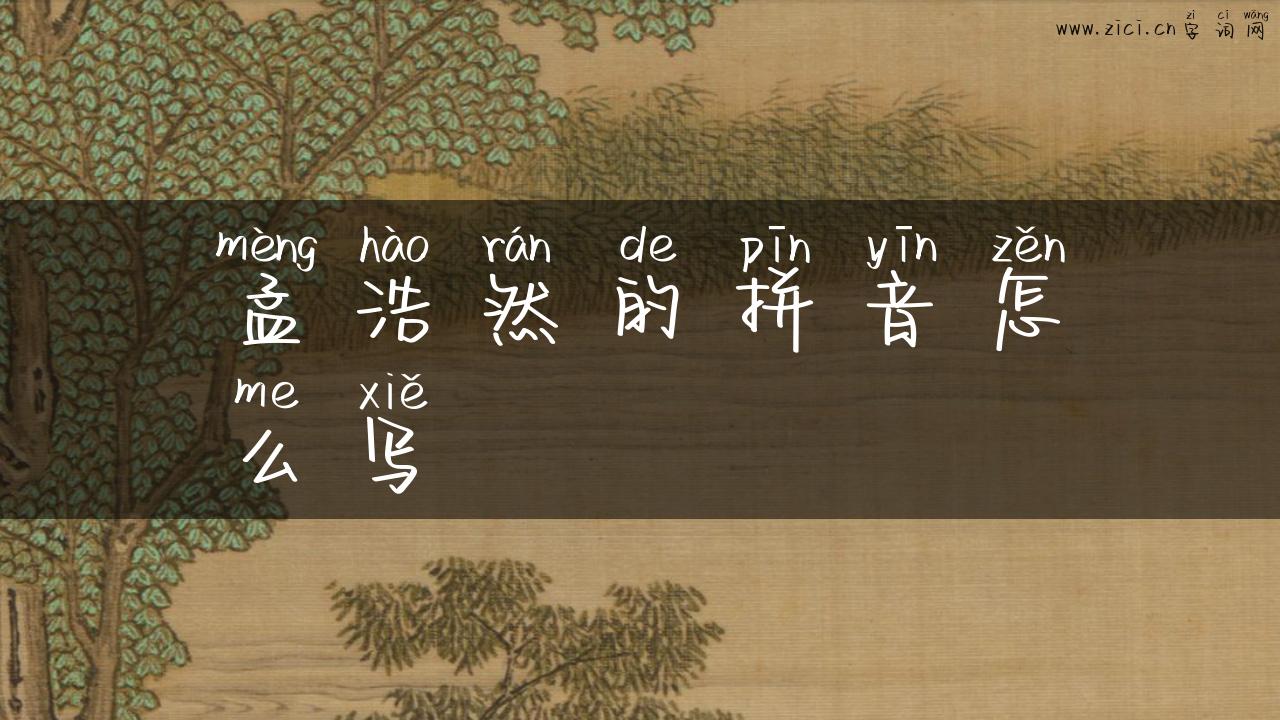 zì cí wǎng
www.zici.cn字词网
mèng hào rán de pīn yīn zěn
孟浩然的拼音怎
me xiě
么写